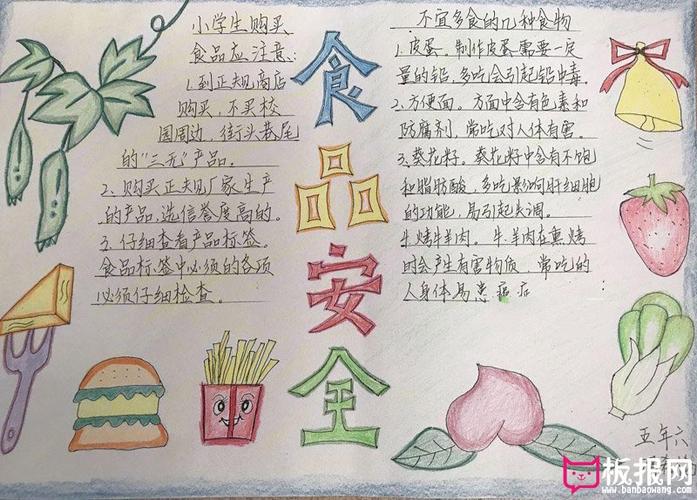 小学生购买
食品应注意:
1.到正规商店
购买,不买校
园周边,街头巷尾
的“三无”产品。
2.购买正规厂家生产
的产品,选信誉度高的。
3.仔细查看产品标签。
食品标签中必须的各项
必须仔细检查。
食品安全
不宜多食的几种食物
1.皮蛋。制作皮蛋需要一定
量的铅,多吃会引起铅中毒。
2.方便面。方面中含有色素和
防腐剂,常吃对人体有害。
3.葵花籽。葵花籽中含有不饱
和脂肪酸,多吃影响肝细胞
的功能,易引起失调。
4.烤牛羊肉。牛.羊肉在熏烤
时会产生有害物质,常吃的
人身体易患癌症
五年六
板报网
www.banbaowang.com